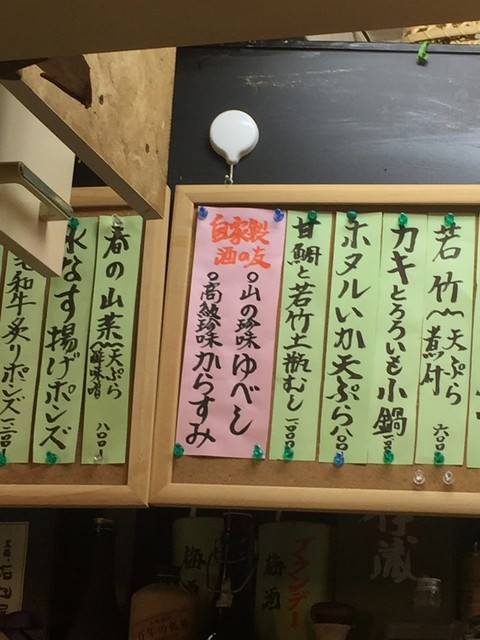 若竹 天ぷら 煮付 六〇〇
カキとろろいも小鍋
ホタルいか天ぷら 八〇〇
甘鯛と若竹土瓶むし 一〇〇〇
自家製
酒の友
○山の珍味 ゆべし
○高級珍味 からすみ
春の山菜 天ぷら 酢味噌 八〇〇
水なす揚げポンズ
和牛炙りポンズ
梅酒
梅酒
ブランデー
蔵